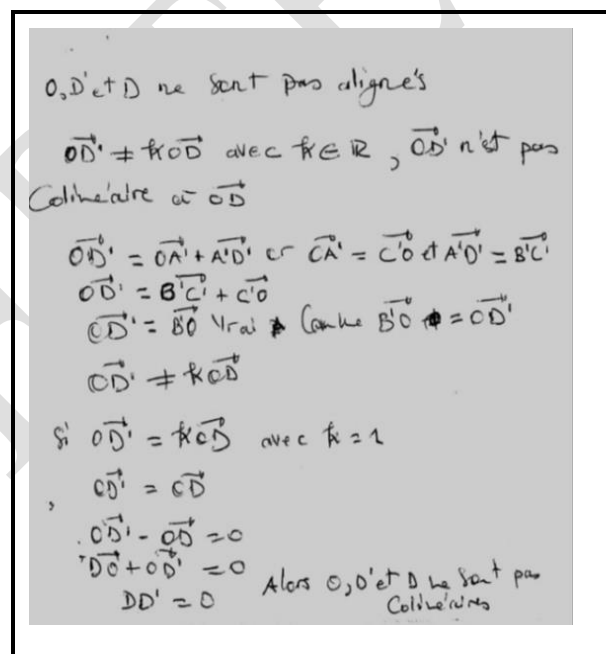 O,D' et D ne sont pas alignés
OD' ≠ kOD avec k ∈ ℝ, OD' n'est pas
Colinéaire à OD
OD' = OA' + A'D' or OA' = C'O et A'D' = B'C'
OD' = B'C' + C'O
OD' = B'O Vrai Comme B'O = OD'
OD' ≠ kOD
Si OD' = kOD avec k = 1
OD' = OD
OD' - OD = 0
DO + OD' = 0
DD' = 0 Alors O,D' et D ne sont pas
Colinéaires